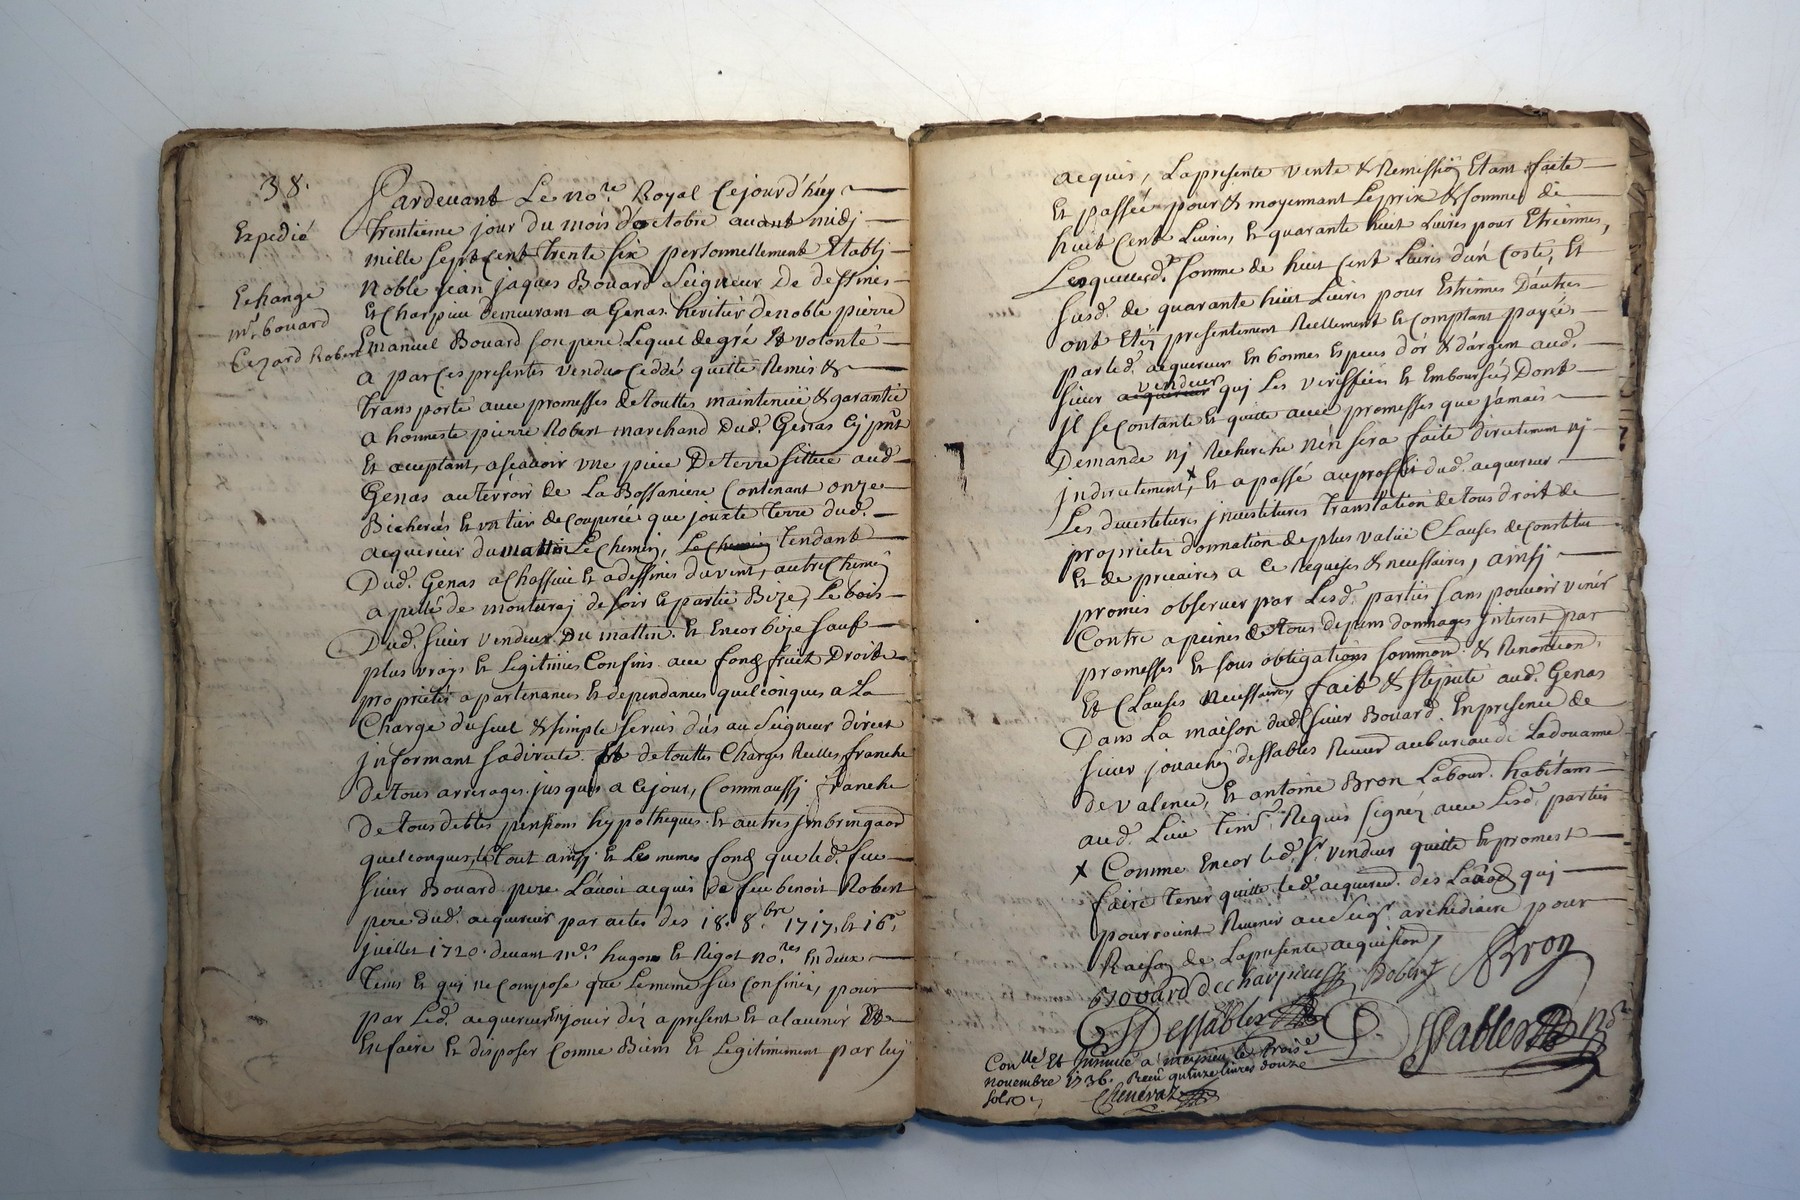 38.
Expedié
Echange
mr. bouard
Cezard Robert
Pardevant Le nore. Royal Cejourd'huy
trentieme jour du mois d'octobre avant midj
mille sept cent trente six personnellement Etablj
Noble jean jaques Bouard Seigneur De dessines
Et Charpieu demeurant a Genas heritier de noble pierre
Emanuel Bouard son pere Lequel de gré Et volonté
a par Ces presentes vendu Ceddé quitté Remis &
transporté avec promesses de touttes maintenüe & garantie
a honneste pierre Robert marchand Dud. Genas Cy pnt
Et acceptant, a scavoir vne piece De terre sittuée aud.
Genas au terroir de La Bossaniere Contenant onze
Bicherées Et vn tier de couperée que jouxte terre dud.
acquereur du mattin Le Chemin, Le Chemin tendant
Dud. Genas a Chassieu Et a dessines du vent, autre Chemin
apellé de monteray de soir Et partie Bize, Le bois
Dud. sieur vendeur Du mattin Et Encor bize sauf
plus vrays Et Legitimes Confins avec fond fruit Droits
proprietés apartenances Et dependances quelconques a La
Charge du seul & simple servis dûs au Seigneur direct
jnformant sa directe Et de touttes Charges Reelles franche
de tous arrerages jusques a Cejour, Comm'aussj franche
De tous debtes pensions hypotheques Et autres
quelconques, le tout ainsj Et Les memes fond que led. feu
sieur Bouard pere L'avoit acquis de feu benoit Robert
pere dud. acquereur par actes des 18. 8.bre 1717, & 16e.
juillet 1720. devant mes. hugon Et Rigot nores. En deux
Et quj ne compose que Le meme sus Confiné, pour
par Led. acquereur En jouir dez a present Et a l'avenir &
En faire Et disposer Comme Biens Et Legitimement par luy
acquis, La presente vente & Remission Etant faite
Et passée pour & moyennant Le prix & somme de
huit Cent Livres, Et quarante huit Livres pour Etreinnes,
Lesquelles d. somme de huit Cent Livres d'un Costé, Et
susd. de quarante huit Livres pour Estreinnes D'autres
ont Eté presentement Reellement Et Comptant payées
par led. acquereur En bonnes Especes d'or & d'argent aud.
sieur acquereur vendeur quj Les Et Emboursées, Dont
jl se Contante Et quitte avec promesses que jamais
Demande nj Recherche n'En sera faite directement nj
jndirectement, x Et a passé au proffit dud. acquereur
Les devestitures jnvestitures Translation de tous droit de
proprietez donnation de plus value Clauses de Constitu
Et de precaires a Ce Requises & necessaires, ainsj
promis observer par Lesd. parties sans pouvoir venir
Contre a peines de tous depens dommages jnterest par
promesses Et sous obligations & Renontion.
Et Clauses Necessaires fait & stipulé aud. Genas
Dans La maison dud. sieur Bouard. En presence de
sieur dessables Receveur au bureau de La douanne
de valence, Et antoine Bron Labour. habitans
aud. Lieu Requis signez avec Lesd. parties
x Comme Encor led. sr. vendeur quitte Et promest
faire tenir quitte led. acquereur. des Laods quj
pourroient Revenir au Seigr. archediacre pour
Raison de La presente acquisition,
Bouard de charpieu Robert Bron
Dessables
Pables
Conlle. Et jnsinué a meyzieu le trois.e
novembre 1736. Receu quinze livres douze
sols
Chenevaz